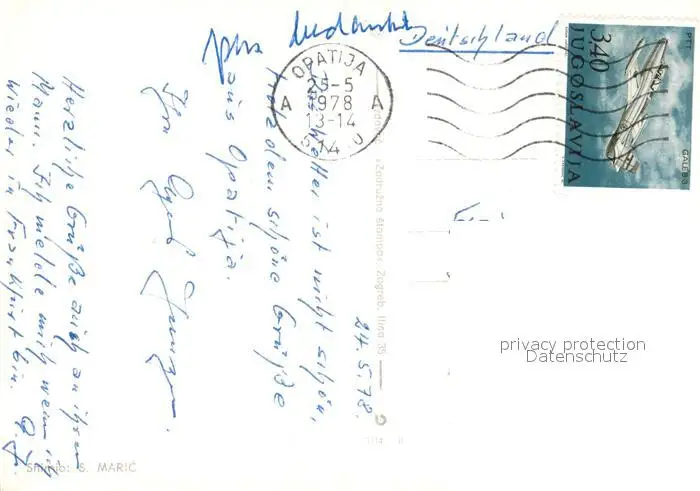 Deutschland
OPATIJA
25-5
1978
13-14
A A
PTT
3,40
JUGOSLAVIJA
24.5.78.
Das Wetter ist nicht schön,
trotzdem schöne Grüße
aus Opatija.
Ihr
Herzliche Grüße auch an Ihren
Mann. Ich melde mich wenn ich
wieder in Frankfurt bin.
»Zadružna štampa« Zagreb, Ilica 35
Snimio: S. MARIĆ
privacy protection
Datenschutz